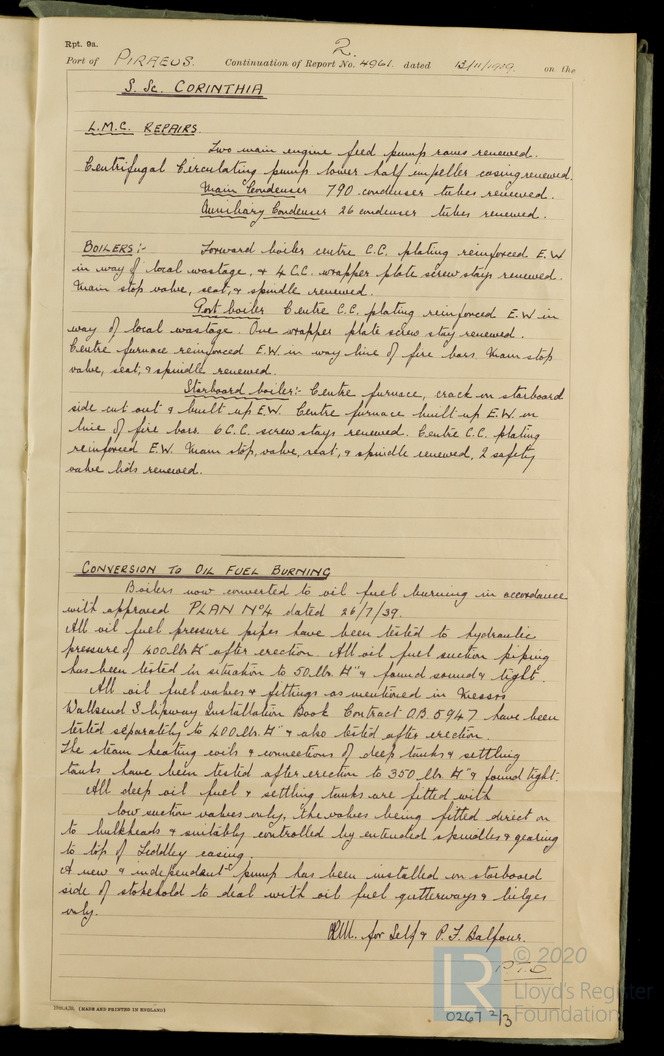 Rpt. 9a.
2.
Port of PIRAEUS. Continuation of Report No. 4961. dated 13/11/1939. on the
S. Sc. CORINTHIA
L.M.C. REPAIRS.
Two main engine feed pump rams renewed.
Centrifugal Circulating pump lower half impeller casing renewed.
Main Condenser 790 condenser tubes renewed.
Auxiliary Condenser 26 condenser tubes renewed.
BOILERS:- Forward boiler centre C.C. plating reinforced E.W
in way of local wastage, & 4 C.C. wrapper plate screw stays renewed.
Main stop valve, seat, & spindle renewed.
Port boiler Centre C.C. plating reinforced E.W in
way of local wastage. One wrapper plate screw stay renewed.
Centre furnace reinforced E.W. in way line of fire bars. Main stop
valve, seat, & spindle renewed.
Starboard boiler:- Centre furnace, crack on starboard
side cut out & built up E.W. Centre furnace built up E.W. in
line of fire bars. 6 C.C. screw stays renewed. Centre C.C. plating
reinforced E.W. Main stop, valve, seat, & spindle renewed, 2 safety
valve lids renewed.
CONVERSION TO OIL FUEL BURNING
Boilers now converted to oil fuel burning in accordance
with approved PLAN Nº4 dated 26/7/39.
All oil fuel pressure pipes have been tested to hydraulic
pressure of 400 lbs □" after erection. All oil fuel suction piping
has been tested in situation to 50 lbs. □" & found sound & tight.
All oil fuel valves & fittings as mentioned in Messrs
Wallsend Slipway Installation Book Contract O.B. 5947 have been
tested separately to 400 lbs. □" & also tested after erection.
The steam heating coils & connections of deep tanks & settling
tanks have been tested after erection to 350 lbs. □" & found tight.
All deep oil fuel & settling tanks are fitted with
low suction valves only, the valves being fitted direct on
to bulkheads & suitably controlled by extended spindles & gearing
to top of Fiddley casing.
A new & independent pump has been installed on starboard
side of stokehold to deal with oil fuel gutterways & bilges
only.
for Self & P. F. Balfour.
P.T.O
© 2020
LR Lloyd's Register
Foundation
0267 2/3
(MADE AND PRINTED IN ENGLAND)